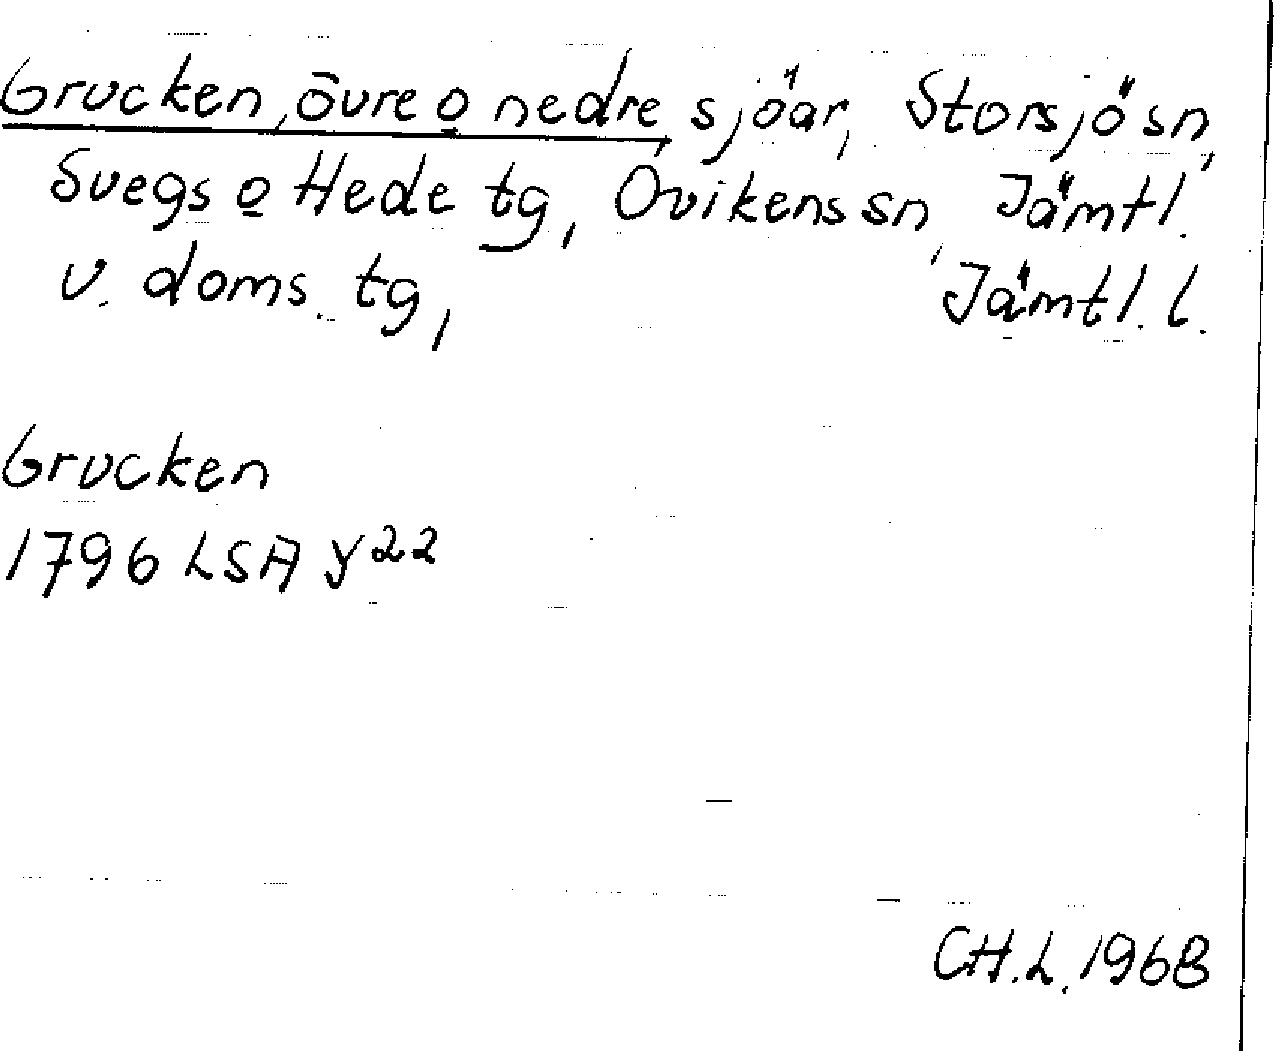 Grucken, övre o nedre, sjöar, Storsjö sn,
Svegs o Hede tg, Ovikens sn, Jämtl.
v. doms. tg, Jämtl. l.
Grucken
1796 LSA Y22
CH.L. 1968